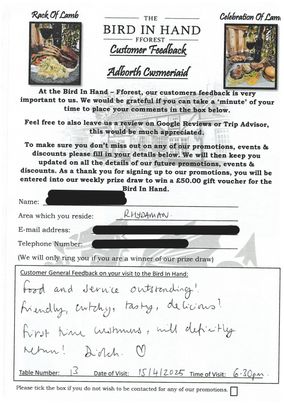 Rack Of Lamb
Celebration Of Lamb
THE
BIRD IN HAND
FFOREST
Customer Feedback
Adborth Cwsmeriaid
At the Bird In Hand – Fforest, our customers feedback is very
important to us. We would be grateful if you can take a 'minute' of your
time to place your comments in the box below.
Feel free to also leave us a review on Google Reviews or Trip Advisor,
this would be much appreciated.
To make sure you don't miss out on any of our promotions, events &
discounts please fill in your details below. We will then keep you
updated on all the details of our future promotions, events &
discounts. As a thank you for signing up to our promotions, you will be
entered into our weekly prize draw to win a £50.00 gift voucher for the
Bird In Hand.
Name:
Area which you reside: RHYDAMAN
E-mail address:
Telephone Number:
(We will only ring you if you are a winner of our prize draw)
Customer General Feedback on your visit to the Bird In Hand:
Food and service outstanding!
Friendly, catchy, tasty, delicious!
First time customers, will definitely
return! Diolch. ♡
Table Number: 13 Date of Visit: 15/4/2025 Time of Visit: 6-30pm
Please tick the box if you do not wish to be contacted for any of our promotions.